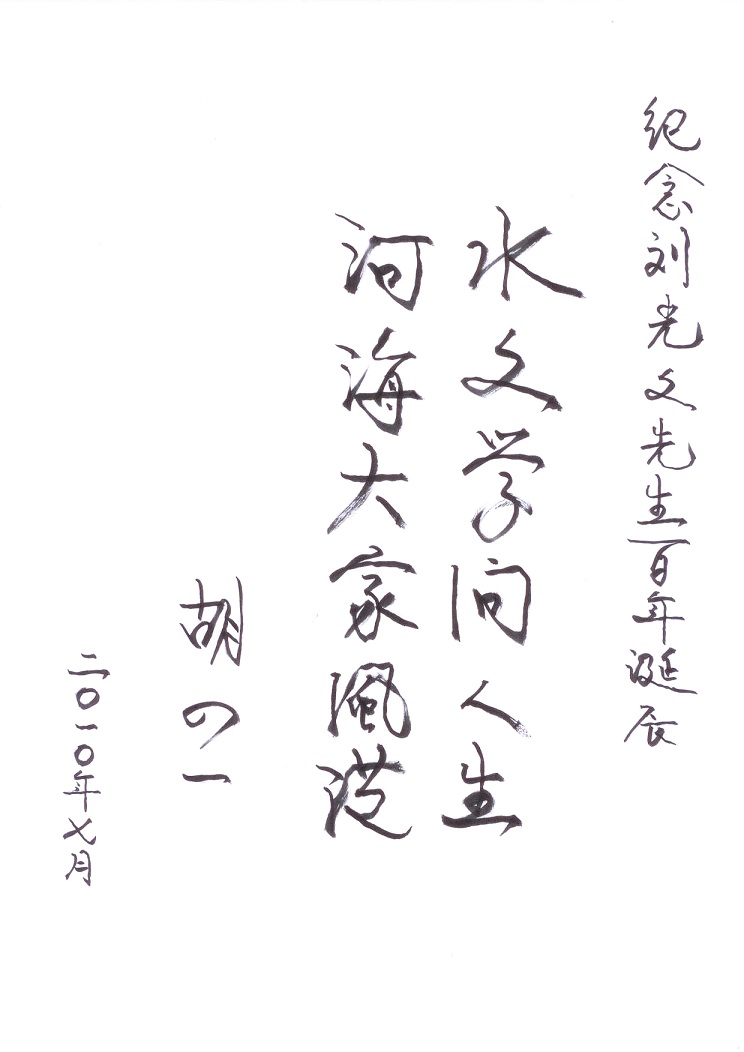 纪念刘光文先生一百年诞辰
水文学问人生
河海大家風范
胡四一
二〇一〇年七月